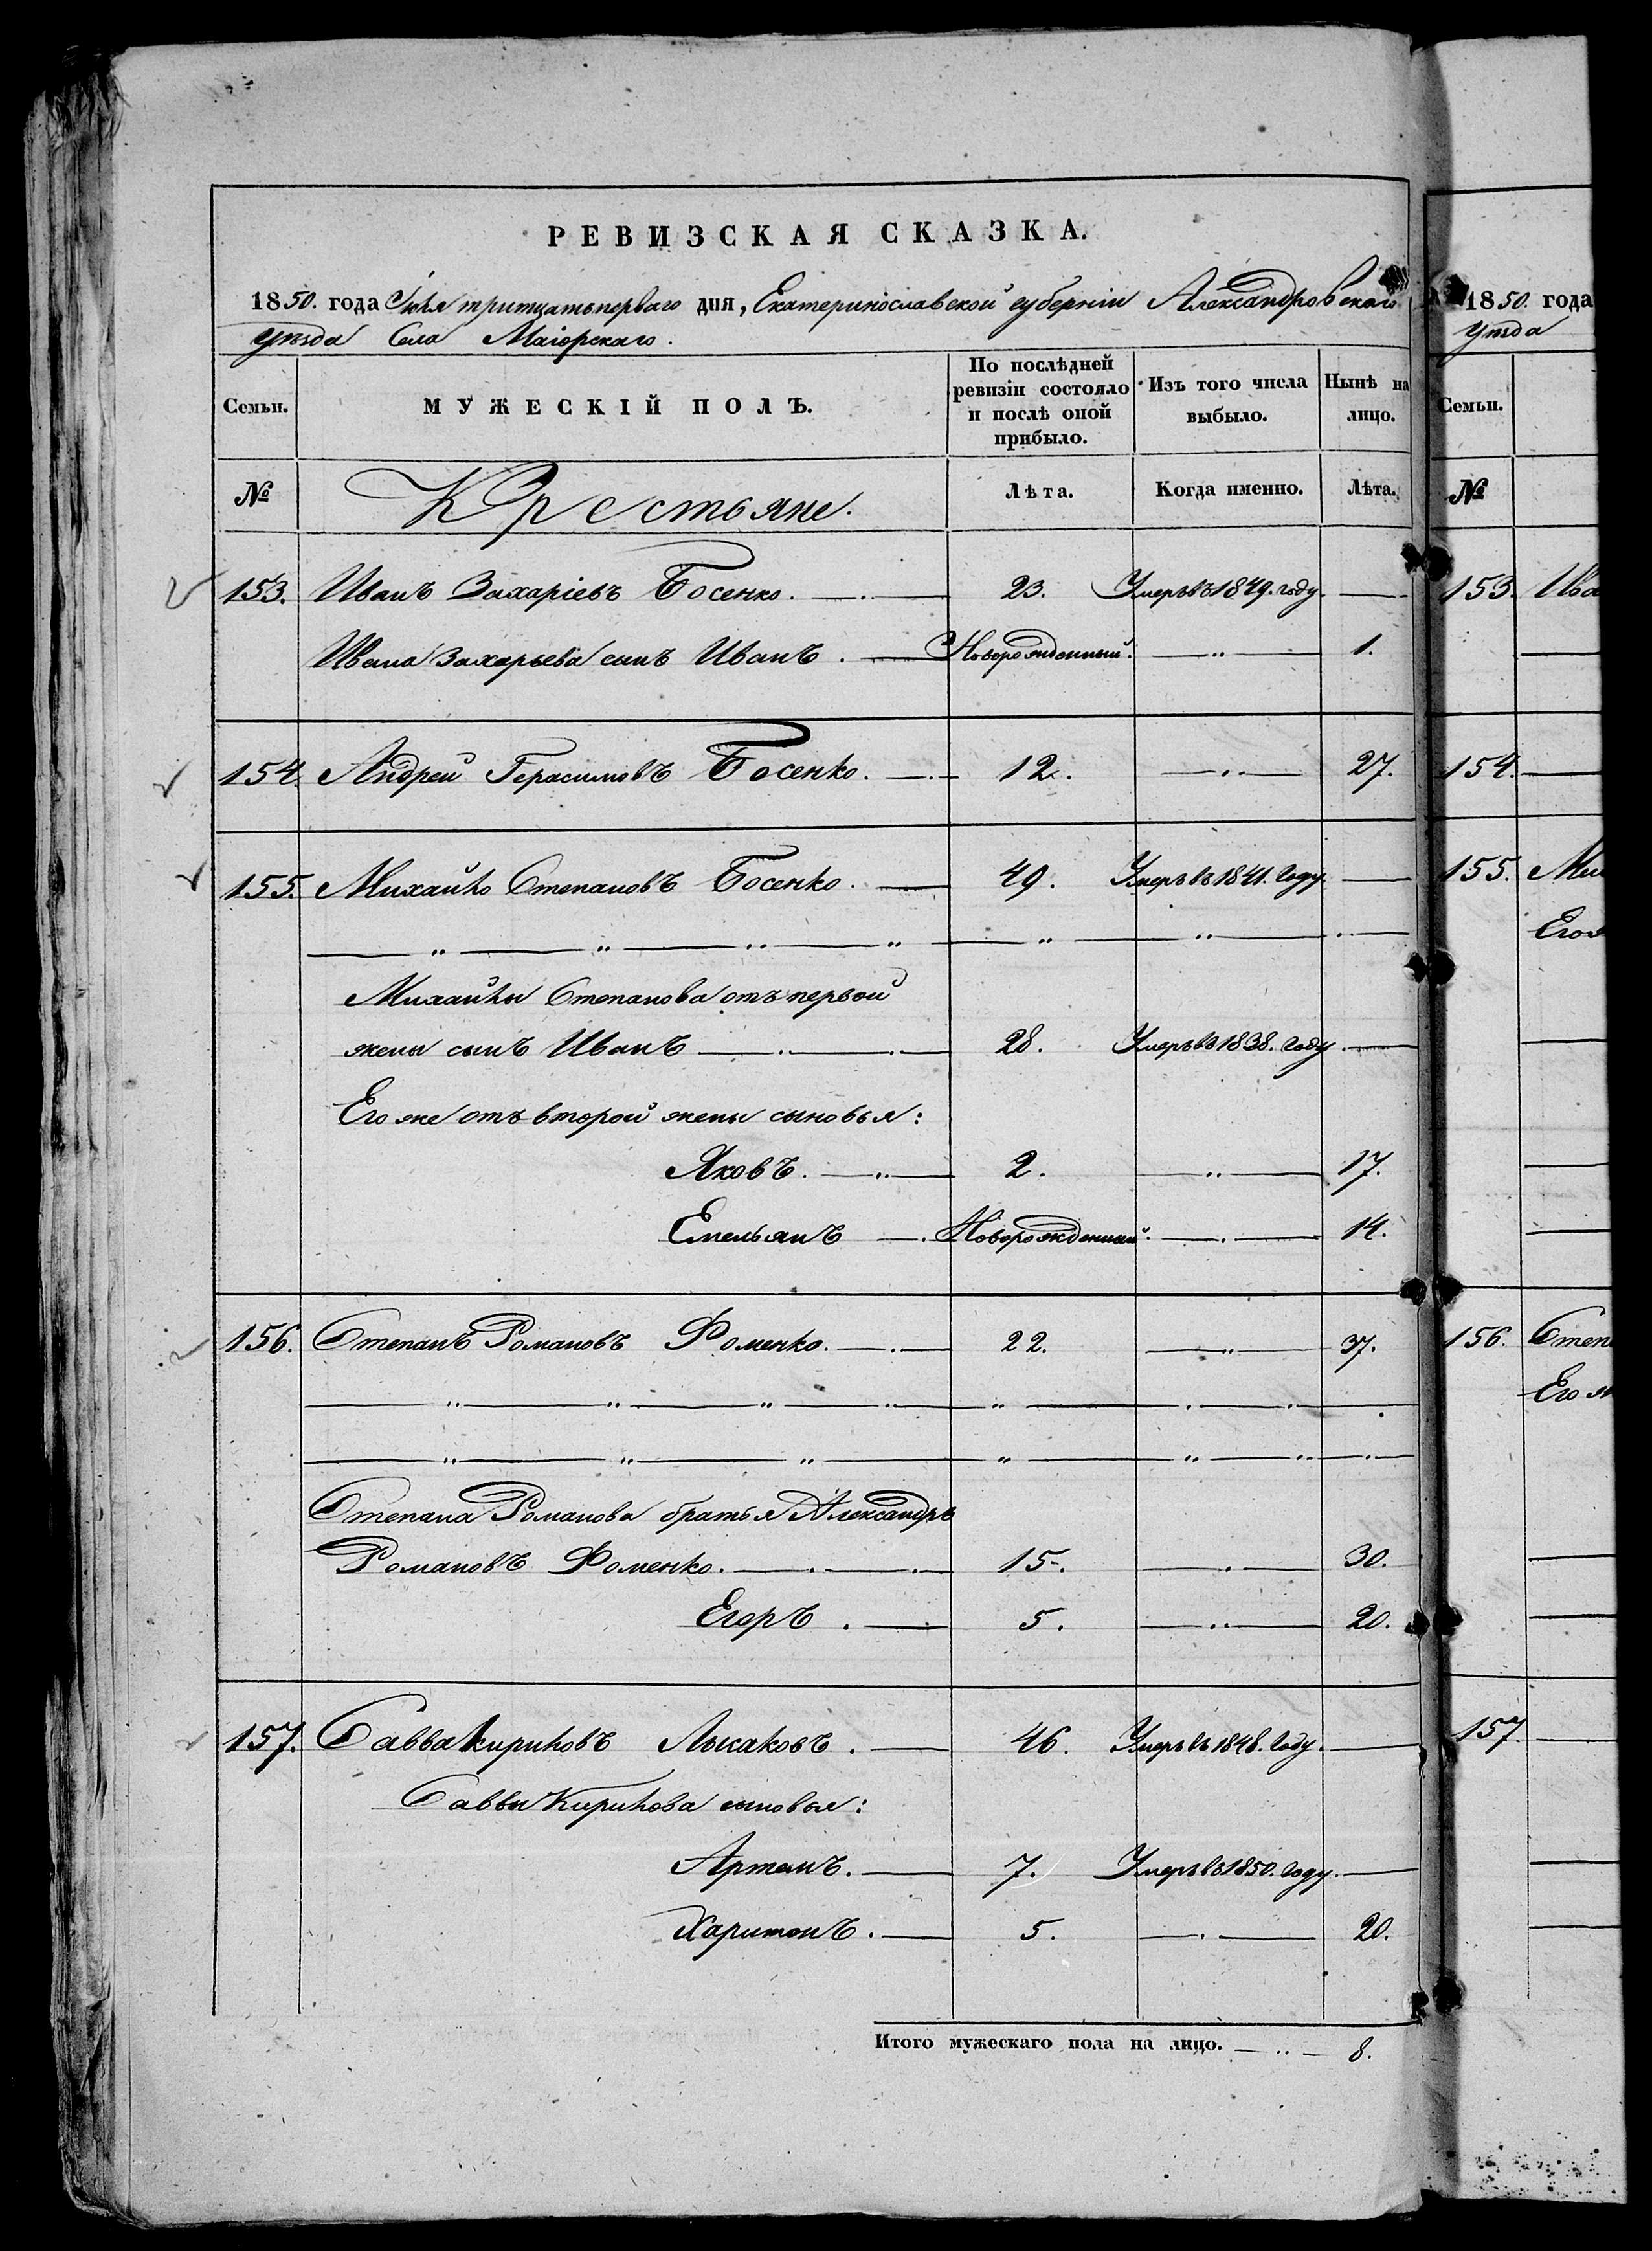 РЕВИЗСКАЯ СКАЗКА.
1850. года Іюля тритцатьперваго дня, Екатеринославской губерніи Александровскаго
уѣзда Села Маіорскаго.
Семьи. МУЖЕСКІЙ ПОЛЪ. По послѣдней ревизіи состояло и послѣ оной прибыло. Изъ того числа выбыло. Нынѣ на лицо.
№ Крестьяне. Лѣта. Когда именно. Лѣта.
153. Иванъ Захаріевъ Босенко. 23. Умеръ въ 1849. году.
Ивана Захарьева сынъ Иванъ. Новорожденный. 1.
154. Андрей Герасимовъ Босенко. 12. 27.
155. Михайло Степановъ Босенко. 49. Умеръ въ 1841. году.
Михайлы Степанова отъ первой
жены сынъ Иванъ 28. Умеръ въ 1838. году.
Его же отъ второй жены сыновья:
Яковъ. 2. 17.
Емельянъ Новорожденный. 14.
156. Степанъ Романовъ Фоменко. 22. 37.
Степана Романова братья Александръ
Романовъ Фоменко. 15. 30.
Егоръ. 5. 20.
157. Савва Кириловъ Лысаковъ. 46. Умеръ въ 1848. году.
Саввы Кирилова сыновья:
Артемъ. 7. Умеръ въ 1850. году.
Харитонъ. 5. 20.
Итого мужескаго пола на лицо. 8.
1850. года
уѣзда
Семьи.
№
153. Ива
154.
155. Ми
Его ж
156. Степ
Его ж
157.